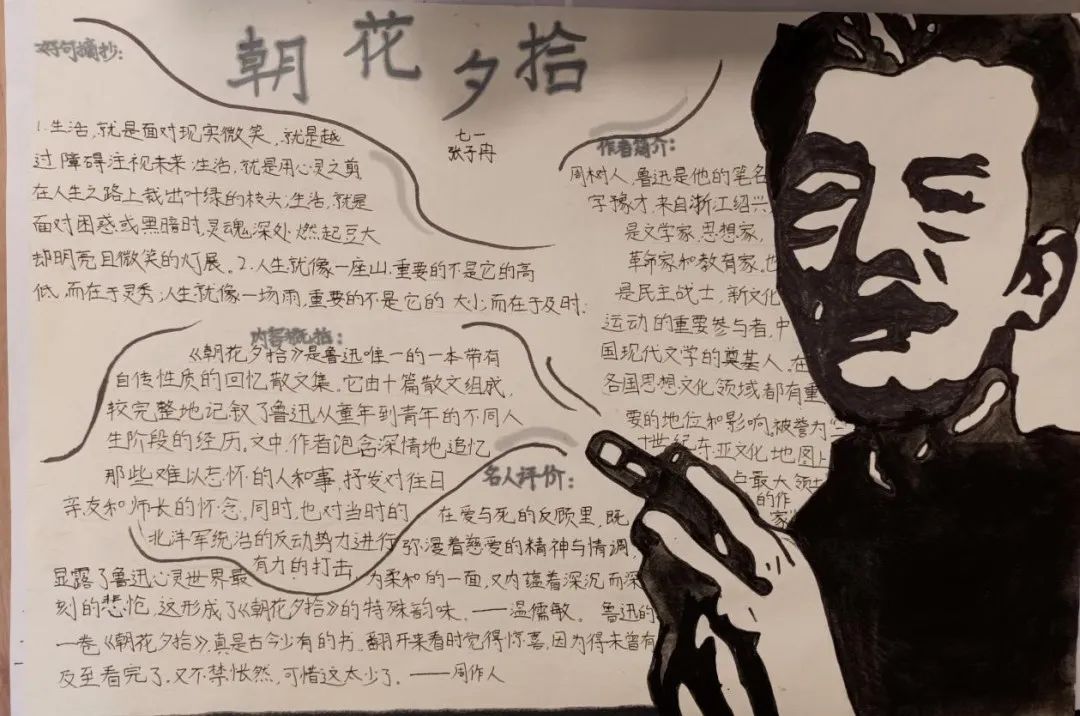 朝花夕拾
七一
张子冉
好句摘抄:
1.生活,就是面对现实微笑,就是越
过障碍注视未来;生活,就是用心灵之剪
在人生之路上裁出叶绿的枝头;生活,就是
面对困惑或黑暗时,灵魂深处燃起豆大
却明亮且微笑的灯展。2.人生就像一座山,重要的不是它的高
低,而在于灵秀;人生就像一场雨,重要的不是它的大小,而在于及时.
内容概括:
《朝花夕拾》是鲁迅唯一的一本带有
自传性质的回忆散文集.它由十篇散文组成,
较完整地记叙了鲁迅从童年到青年的不同人
生阶段的经历.文中,作者饱含深情地追忆
那些难以忘怀的人和事,抒发对往日
亲友和师长的怀念,同时,也对当时的
北洋军统治的反动势力进行
有力的打击,
作者简介:
周树人,鲁迅是他的笔名
字豫才,来自浙江绍兴
是文学家,思想家,
革命家和教育家,也
是民主战士,新文化
运动的重要参与者,中
国现代文学的奠基人.在
各国思想文化领域都有重
要的地位和影响,被誉为"二
十世纪东亚文化地图上
占最大领土
的作
家"
名人评价:
在爱与死的反顾里,既
弥漫着慈爱的精神与情调,
显露了鲁迅心灵世界最为柔和的一面,又内蕴着深沉而深
刻的悲怆,这形成了《朝花夕拾》的特殊韵味.——温儒敏。鲁迅的
一卷《朝花夕拾》,真是古今少有的书.翻开来看时觉得惊喜,因为得未曾有
及至看完了,又不禁怅然,可惜这太少了。——周作人